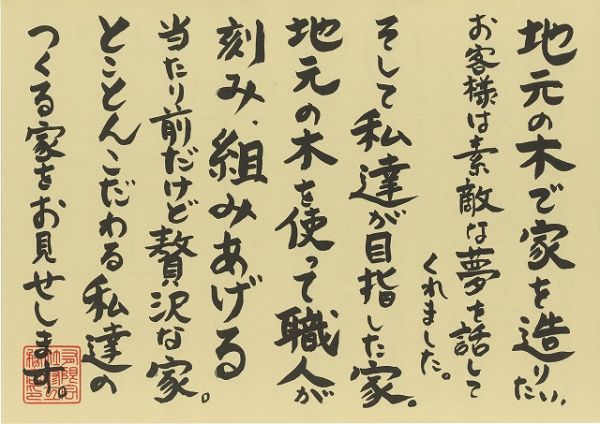 地元の木で家を造りたい、
お客様は素敵な夢を話して
くれました。
そして私達が目指した家。
地元の木を使って職人が
刻み、組みあげる
当たり前だけど贅沢な家。
とことんこだわる私達の
つくる家をお見せします。